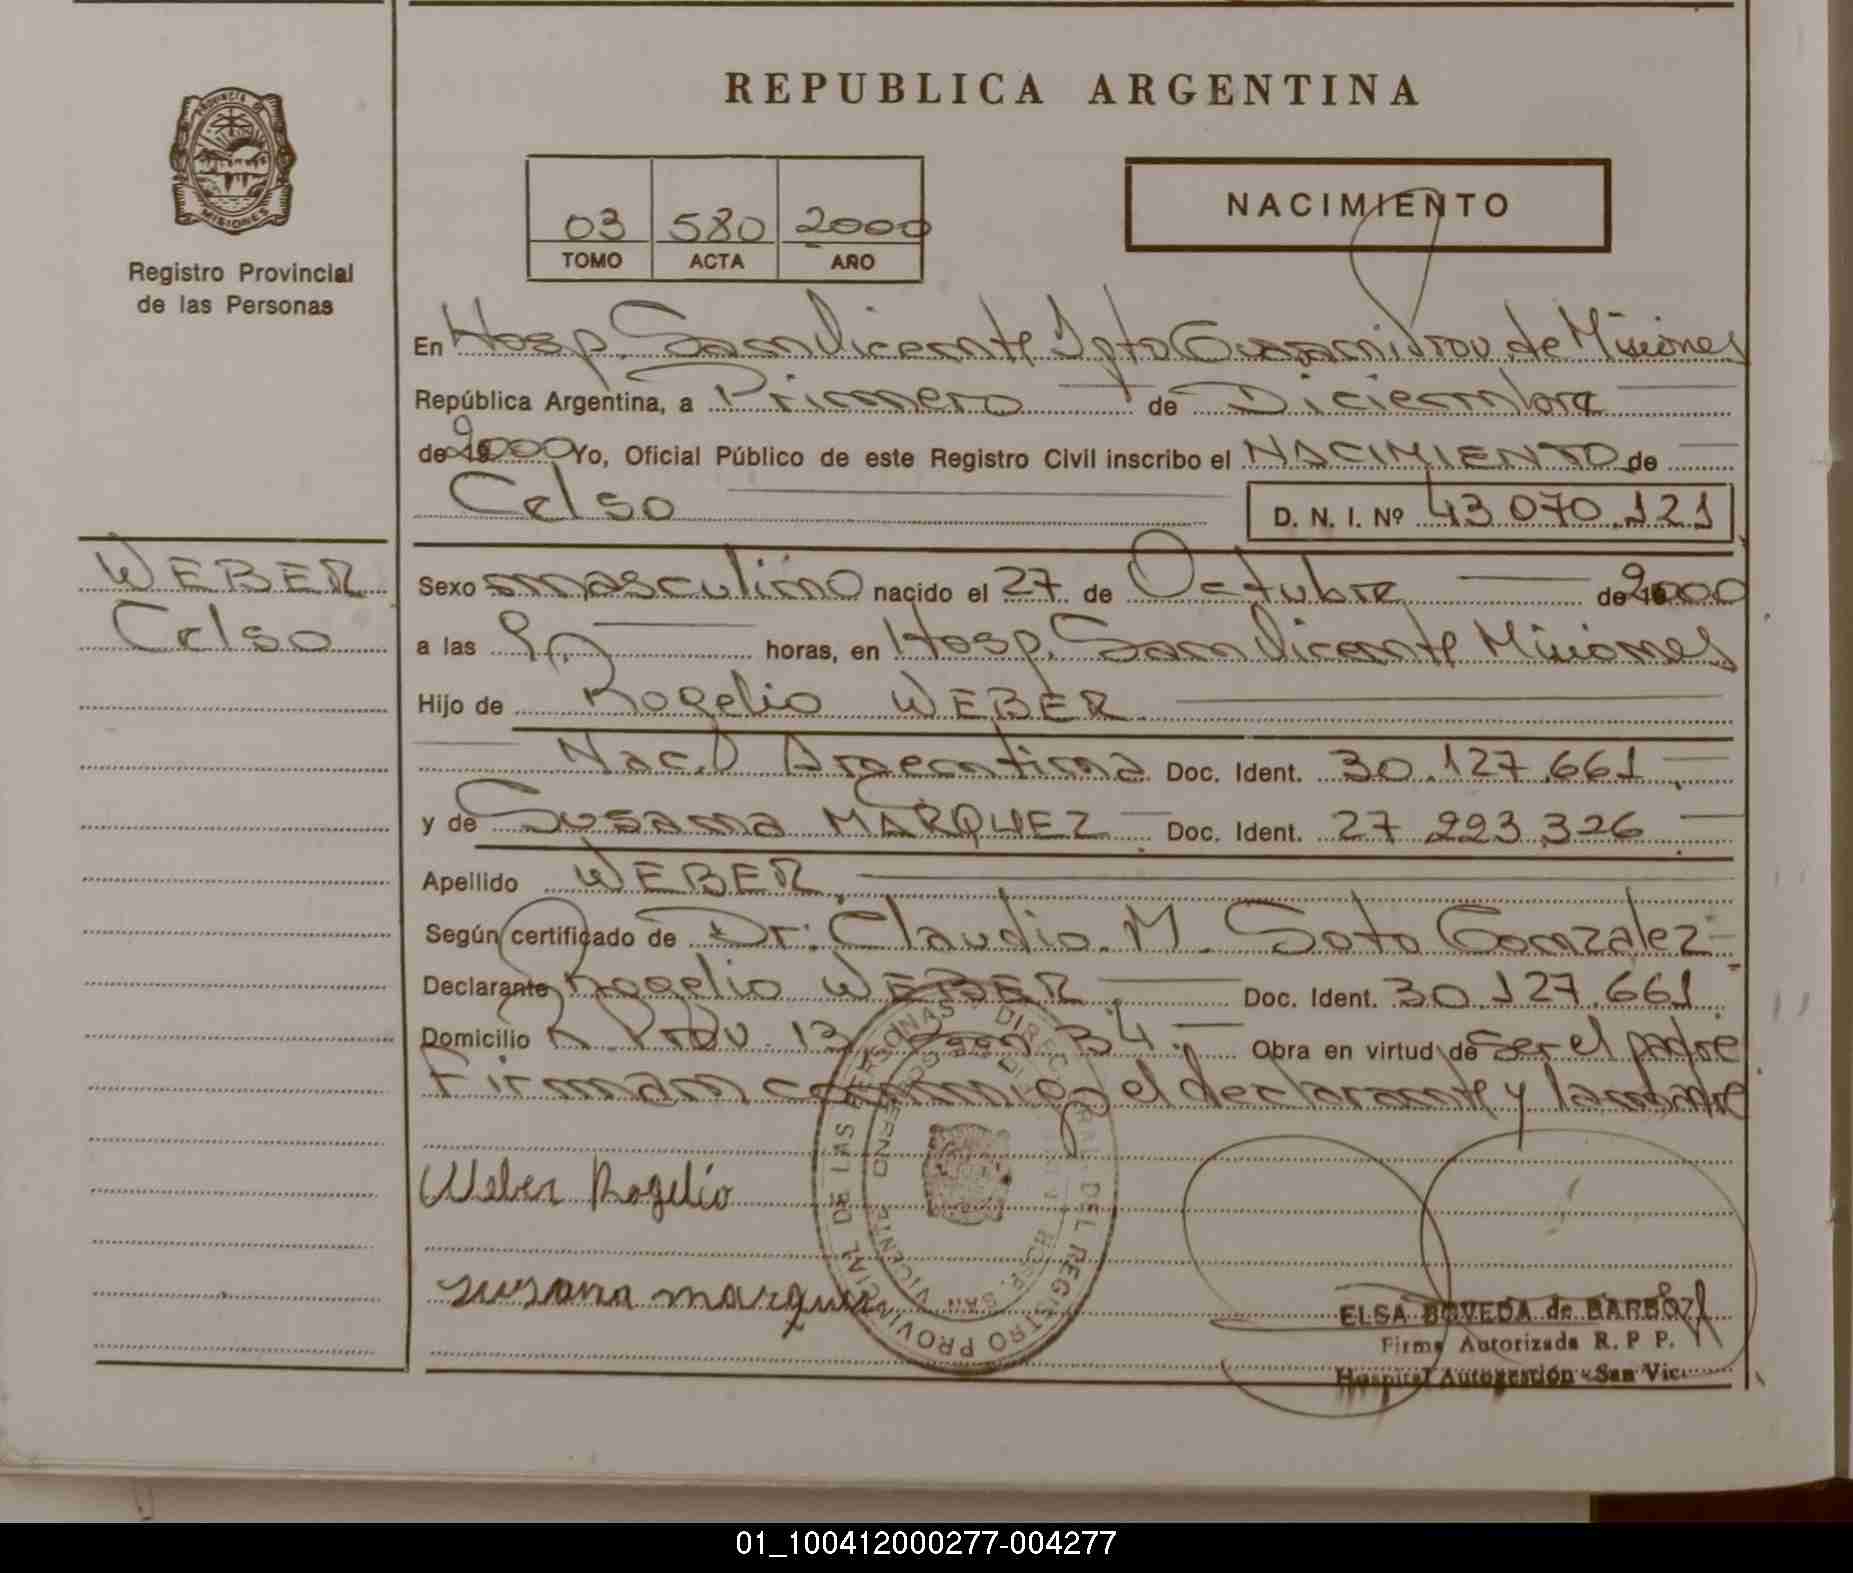 REPUBLICA ARGENTINA
PROVINCIA DE
MISIONES
Registro Provincial
de las Personas
03 580 2000
TOMO ACTA AÑO
NACIMIENTO
En Hosp. San Vicente Dpto Guaraní Prov. de Misiones
República Argentina, a Primero de Diciembre
de 2000 Yo, Oficial Público de este Registro Civil inscribo el NACIMIENTO de
Celso
D. N. I. Nº 43.070.121
WEBER
Celso
Sexo masculino nacido el 27 de Octubre de 2000
a las horas, en Hosp. San Vicente Misiones
Hijo de Rogelio WEBER
Nac.D Argentina Doc. Ident. 30.127.661
y de Susana MARQUEZ Doc. Ident. 27.223.326
Apellido WEBER
Según certificado de Dr. Claudio M. Soto Gonzalez
Declarante Rogelio WEBER Doc. Ident. 30.127.661
Domicilio R. Prov. 13 34 Obra en virtud de ser el padre
Firman conmigo el declarante y la madre
Weber Rogelio
susana marquez
DIREC RAL DEL REGISTRO PROVINCIAL DE LAS PERSONAS
HOSP. SAN VICENTE
ELSA BOVEDA de BARBOZA
Firma Autorizada R. P P.
Hospital Autogestión - San Vic.
01_100412000277-004277